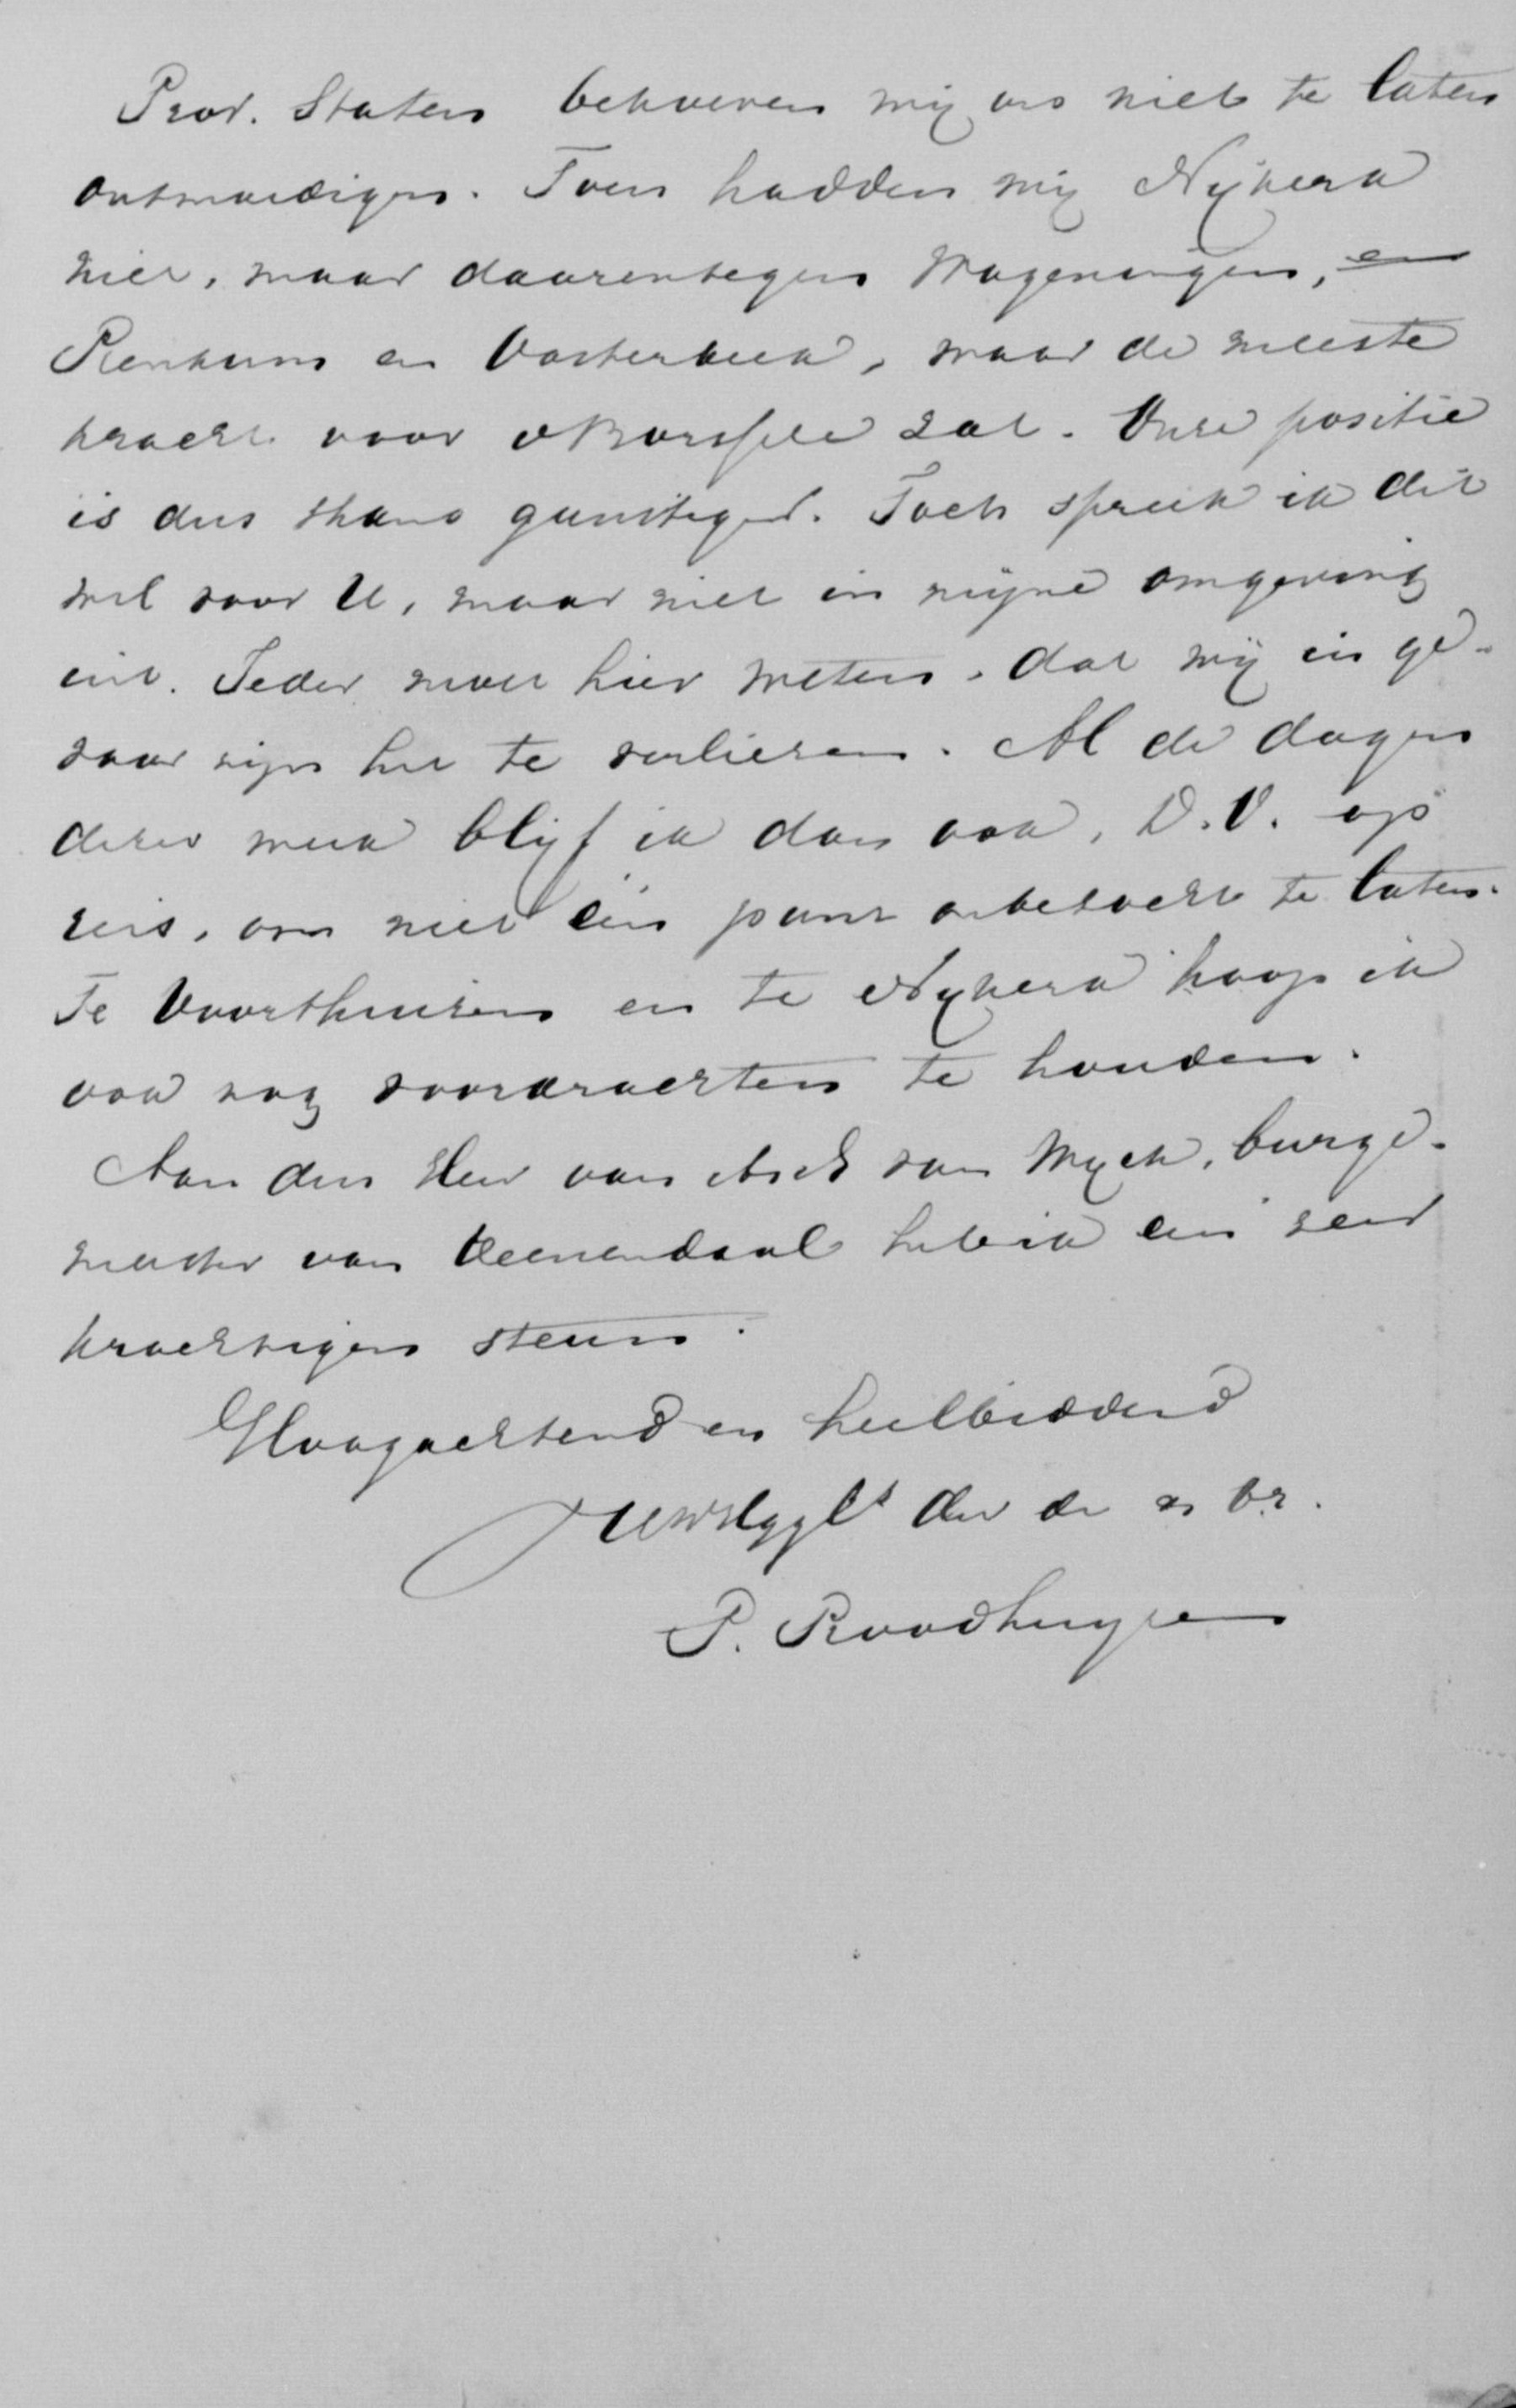 Prov. Staten behoeven wij ons niet te laten
ontmoedigen. Toen hadden wij Nijkerk
niet, maar daarentegen Wageningen, en
Renkum en Oosterbeek, waar de meeste
kracht voor v Borssele zat. Onze positie
is dus thans gunstiger. Toch spreek ik dit
wel voor U, maar niet in mijne omgeving
uit. Ieder moet hier weten, dat wij in ge-
vaar zijn het te verliezen. Al de dagen
dezer week blijf ik dan ook, D.V. op
reis, om niet één punt onbezocht te laten.
Te Voorthuizen en te Nijkerk hoop ik
ook nog voordrachten te houden.
Aan den Heer van Asch van Wyck, burge-
meester van Veenendaal heb ik een zeer
krachtigen steun.
Hoogachtend en heilbiddend
UwHgglt dw dr en br.
P. Roodhuyzen